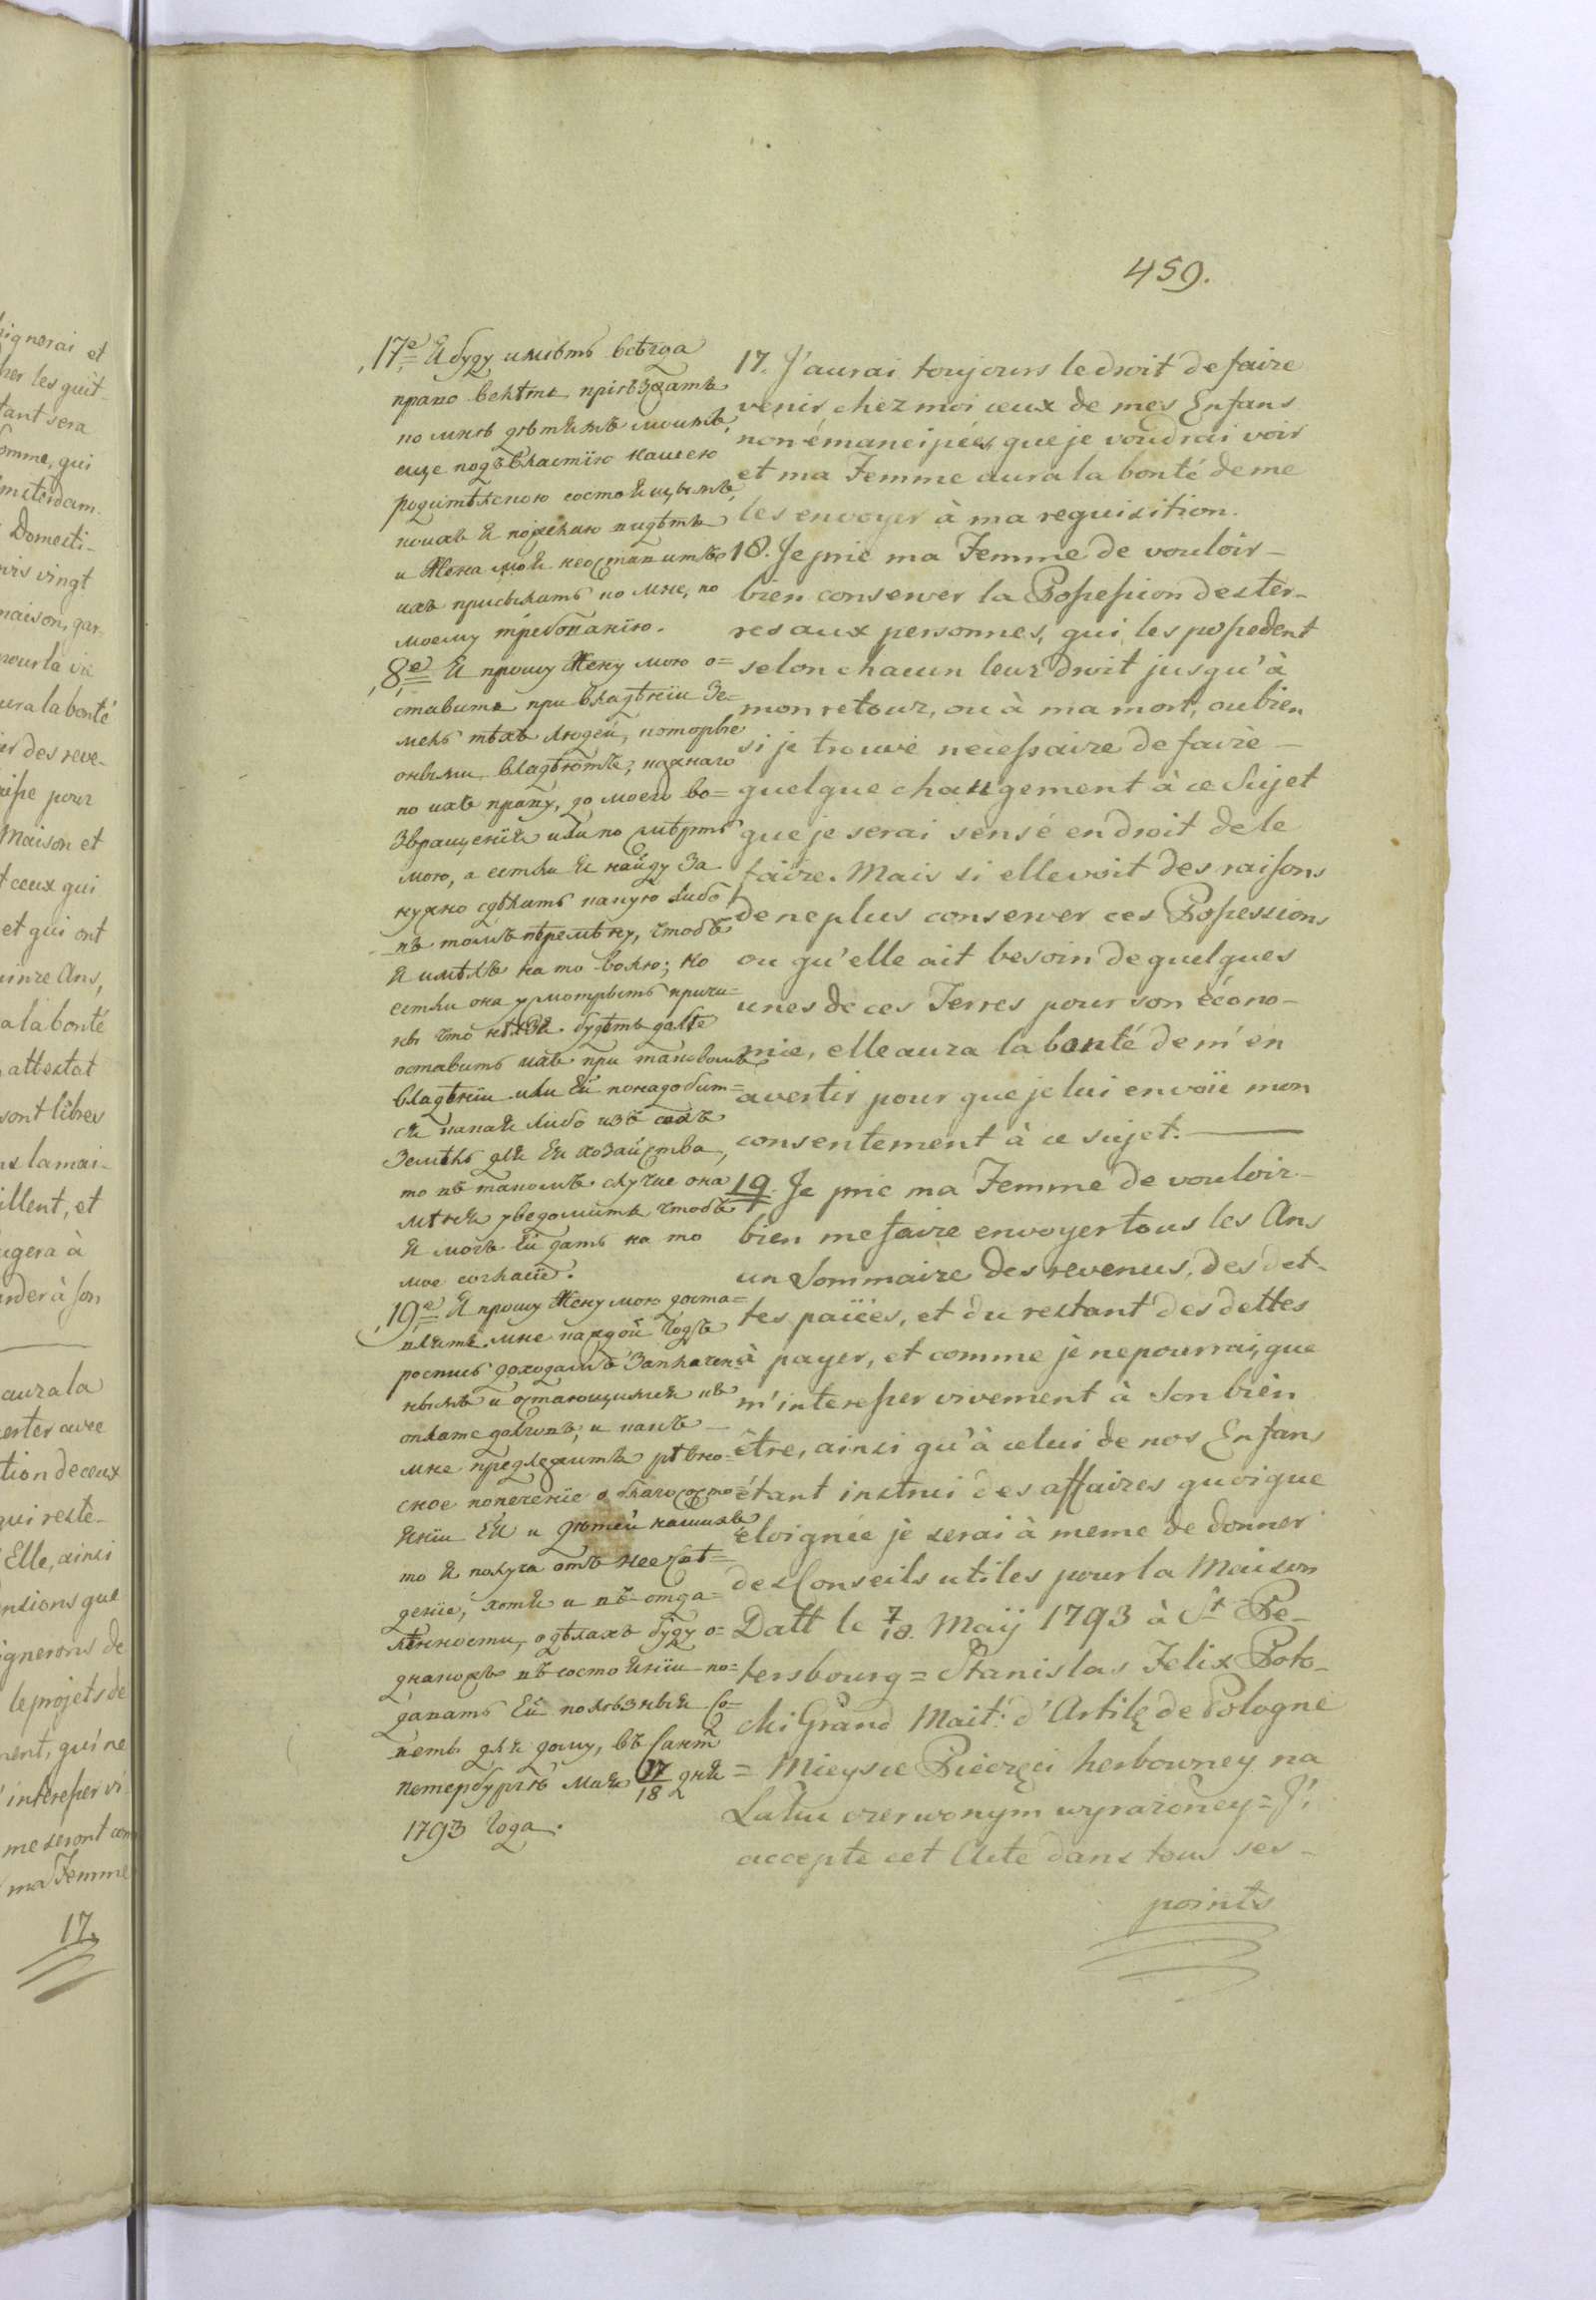 459.
17е Я буду имѣть всѣгда
право велѣть пріѣзжать
ко мнѣ дѣтямъ моимъ,
еще подъ властїю нашею
родитѣлскою состоящымъ,
коихъ я пожелаю видѣть
и Жена моя неоставитъ
ихъ присылать ко мне, по
моему требованїю.
18е Я прошу Жену мою о=
ставить при владѣнїи Зе=
мель тѣхъ людей, которые
оными владѣютъ, каждаго
по ихъ праву, до моего во=
звращенїя или по смѣрть
мою, а естли я найду За
нужно сдѣлать какую либо
въ томъ пѣремѣну, чтобъ
я имѣлъ на то волю; но
естли она усмотрытъ причи=
ны что нѣлзя будѣтъ далѣе
оставить ихъ при таковомъ
владѣнїи или Ей понадобит=
ся какая либо изъ сихъ
Земѣль для Ея хозайства,
то въ такомъ случае она
мѣня уведомитъ чтобъ
я могъ Ей дать на то
мое согласїе.
19е Я прошу Жену мою доста=
влять мне каждой годъ
роспись доходамъ Заплачен=
нымъ и остающимся въ
оплате долговъ, и какъ
мне предлежитъ рѣвно=
сное попеченїе о благосостоя=
янїи Ея и дѣтей нашихъ
то я получа отъ нее свѣ=
денїе, хотя и въ отда=
лѣнности, о дѣлахъ буду о=
днакожъ въ состоянїи по=
давать Ей полѣзныя Со=
веты для дому, въ Санкт
петербургѣ мая 7/18 дня
1793 года.
17. J'aurai toujours le droit de faire
venir chez moi ceux de mes Enfans
non émancipées que je voudrai voir
et ma Femme aura la bonté de me
les envoyer à ma requisition.
18. Je prie ma Femme de vouloir
bien conserver la Possession des ter-
res aux personnes, qui les possedent
selon chacun leur Droit jusqu'à
mon retour, ou à ma mort, oubien
si je trouve necessaire de faire
quelque changement à ce Sujet
que je serai sensé en droit de le
faire. Mais si elle voit des raisons
de ne plus conserver ces Possessions
ou qu'elle ait besoin de quelques
unes de ces Terres pour son écono-
mie, elle aura la bonté de m'en
avertir pour que je lui envoïe mon
consentement à ce sujet.
19. Je prie ma Femme de vouloir
bien me faire envoyer tous les Ans
un Sommaire des revenus, des det-
tes païées, et du restant des dettes
à payer, et comme je ne pourrai, que
m'interesser vivement à Son bien
être, ainsi qu'à celui de nos Enfans
étant instrui des affaires quoique
eloignée je serai à meme de donner
des Conseils utiles pour la Maison
Datt le 7/18. Maÿ 1793 à St Pe-
tersbourg = Stanislas Felix Poto-
cki Grand Mait: d'Artile de Pologne
= Mieysce Pieczęci herbowney na
Laku czerwonym wyrażoney = J'
accepte cet Acte dans tous ses
points
signerai et
tant sera
somme, qui
Amsterdam.
Domesti-
vingt
maison, gar-
pour la vie
aura la bonté
des reve-
pour
Maison et
ceux qui
et qui ont
quinze Ans,
a la bonté
attestat
sont libres
la mai-
et
à
à son
aura la
avec
tion de ceux
qui reste-
Elle, ainsi
pensions que
signerons de
le projets de
qui ne
interesser vi-
me seront com
ma Femme
17.